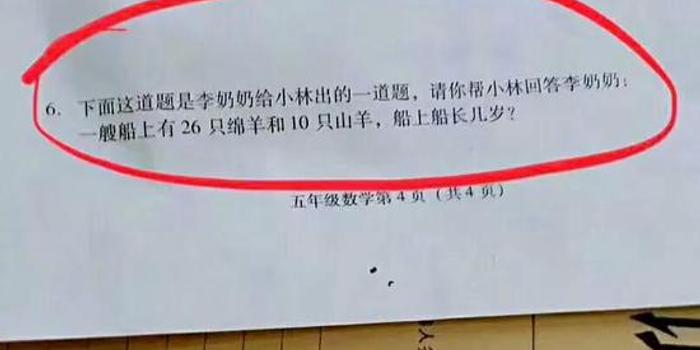 6. 下面这道题是李奶奶给小林出的一道题，请你帮小林回答李奶奶：
一艘船上有 26 只绵羊和 10 只山羊，船上船长几岁？
五年级数学第 4 页（共 4 页）